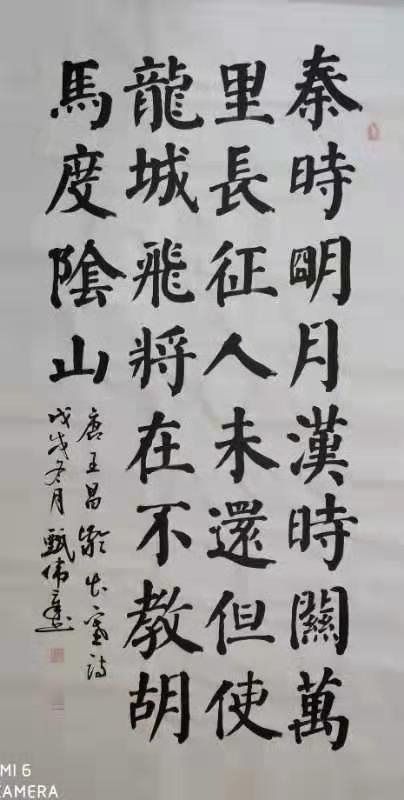 秦時明月漢時關萬
里長征人未還但使
龍城飛將在不教胡
馬度陰山
唐王昌齡出塞詩
戊戌冬月甄偉
MI 6
CAMERA